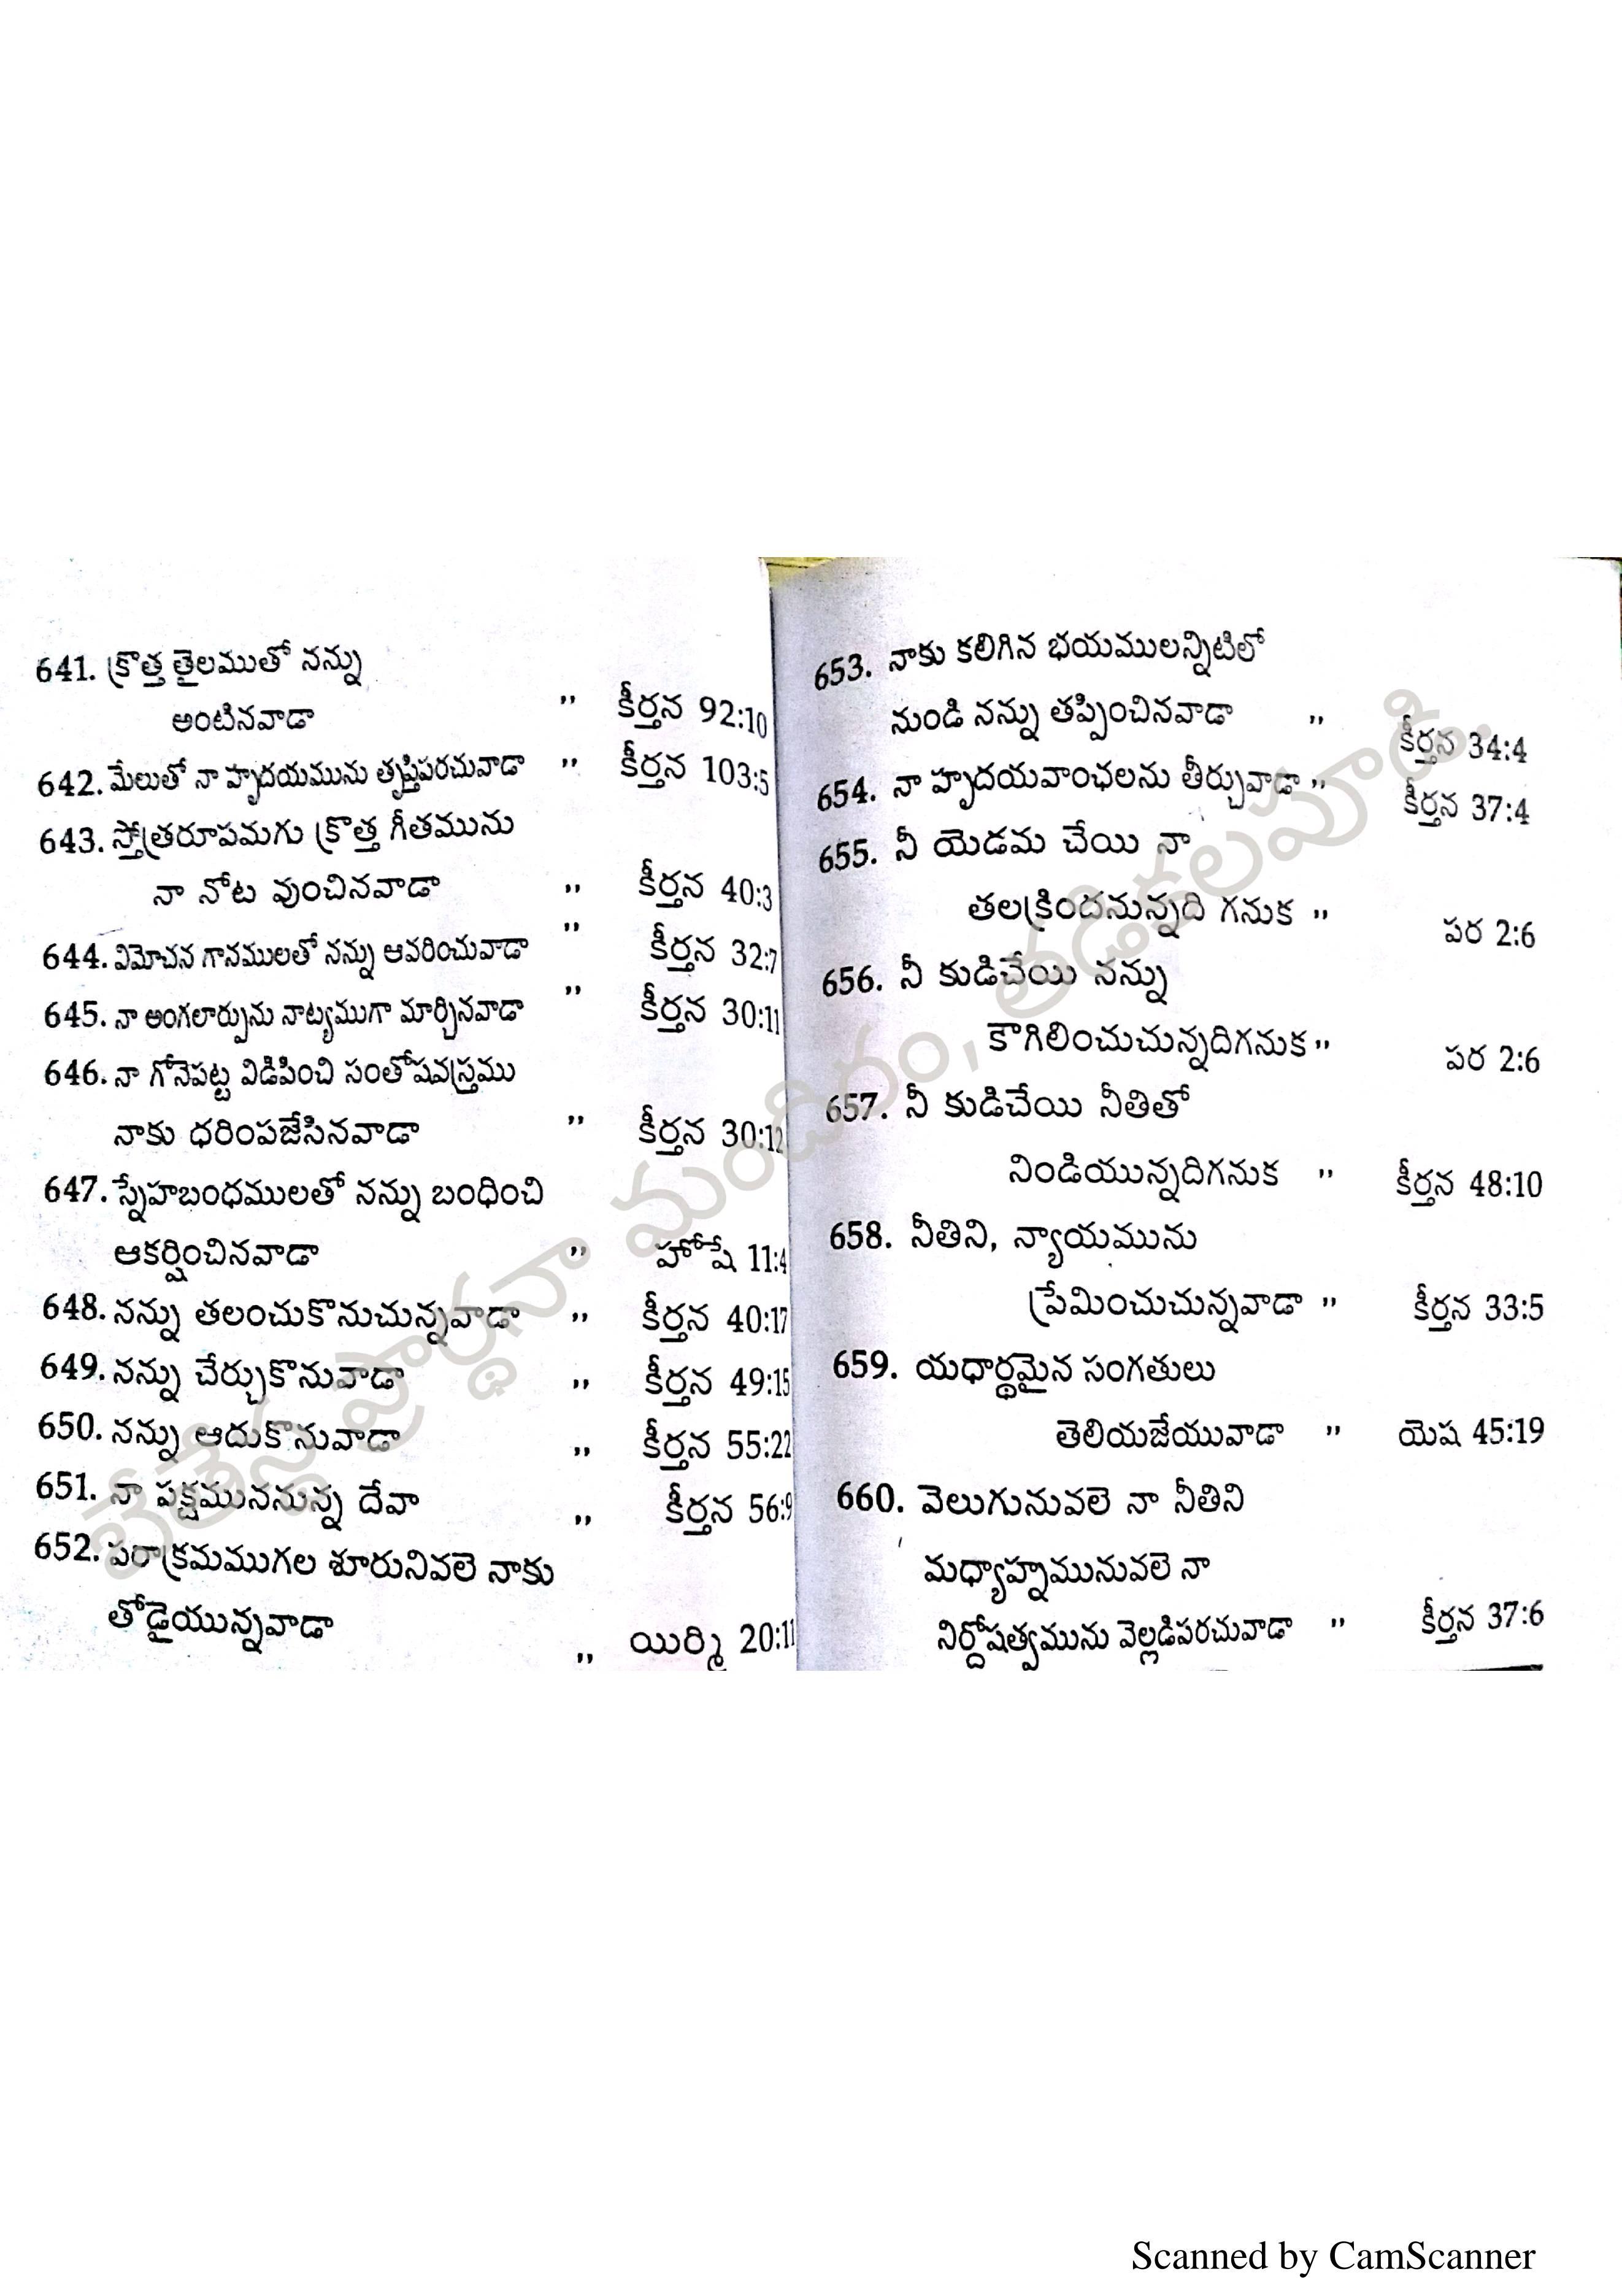 641. క్రొత్త తైలముతో నన్ను
అంటినవాడా " కీర్తన 92:10
642. మేలుతో నా హృదయమును తృప్తిపరచువాడా " కీర్తన 103:5
643. స్తోత్రరూపమగు క్రొత్త గీతమును
నా నోట వుంచినవాడా " కీర్తన 40:3
644. విమోచన గానములతో నన్ను ఆవరించువాడా " కీర్తన 32:7
645. నా అంగలార్పును నాట్యముగా మార్చినవాడా " కీర్తన 30:11
646. నా గోనెపట్ట విడిపించి సంతోషవస్త్రము
నాకు ధరింపజేసినవాడా " కీర్తన 30:12
647. స్నేహబంధములతో నన్ను బంధించి
ఆకర్షించినవాడా " హోషే 11:4
648. నన్ను తలంచుకొనుచున్నవాడా " కీర్తన 40:17
649. నన్ను చేర్చుకొనువాడా " కీర్తన 49:15
650. నన్ను ఆదుకొనువాడా " కీర్తన 55:22
651. నా పక్షముననున్న దేవా " కీర్తన 56:9
652. పరాక్రమముగల శూరునివలె నాకు
తోడైయున్నవాడా " యిర్మి 20:11
653. నాకు కలిగిన భయములన్నిటిలో
నుండి నన్ను తప్పించినవాడా " కీర్తన 34:4
654. నా హృదయవాంఛలను తీర్చువాడా " కీర్తన 37:4
655. నీ యెడమ చేయి నా
తలక్రిందనున్నది గనుక " పర 2:6
656. నీ కుడిచేయి నన్ను
కౌగిలించుచున్నదిగనుక " పర 2:6
657. నీ కుడిచేయి నీతితో
నిండియున్నదిగనుక " కీర్తన 48:10
658. నీతిని, న్యాయమును
ప్రేమించుచున్నవాడా " కీర్తన 33:5
659. యధార్థమైన సంగతులు
తెలియజేయువాడా " యెష 45:19
660. వెలుగునువలె నా నీతిని
మధ్యాహ్నమునువలె నా
నిర్దోషత్వమును వెల్లడిపరచువాడా " కీర్తన 37:6
బేతేస్ద ప్రార్థనా మందిరం, తడికలపూడి.
Scanned by CamScanner